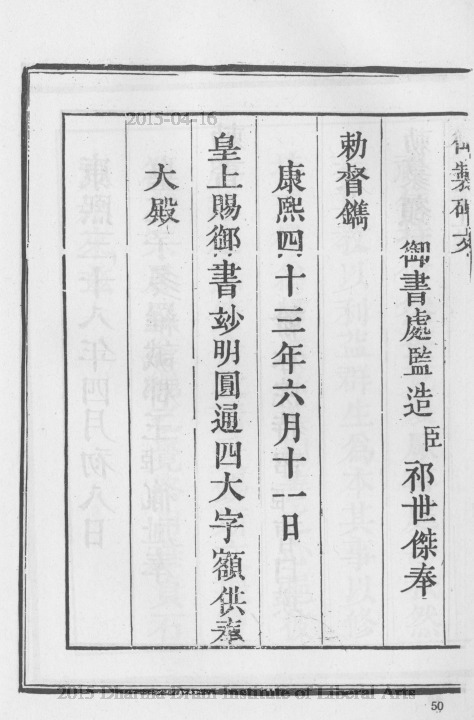 御製碑文
御書處監造臣祁世傑奉
勅督鐫
康熙四十三年六月十一日
皇上賜御書玅明圓通四大字額供奉
大殿
2015-04-16
2015 Dharma Drum Institute of Liberal Arts
50